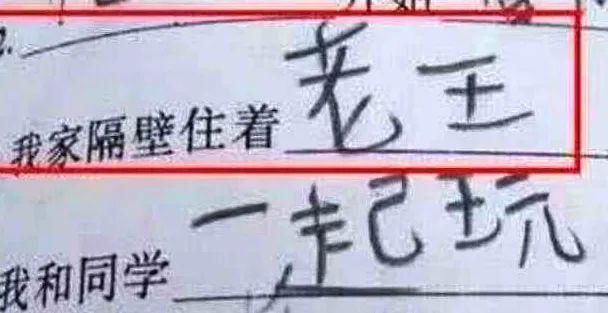 2.
我家隔壁住着老王
我和同学一起玩